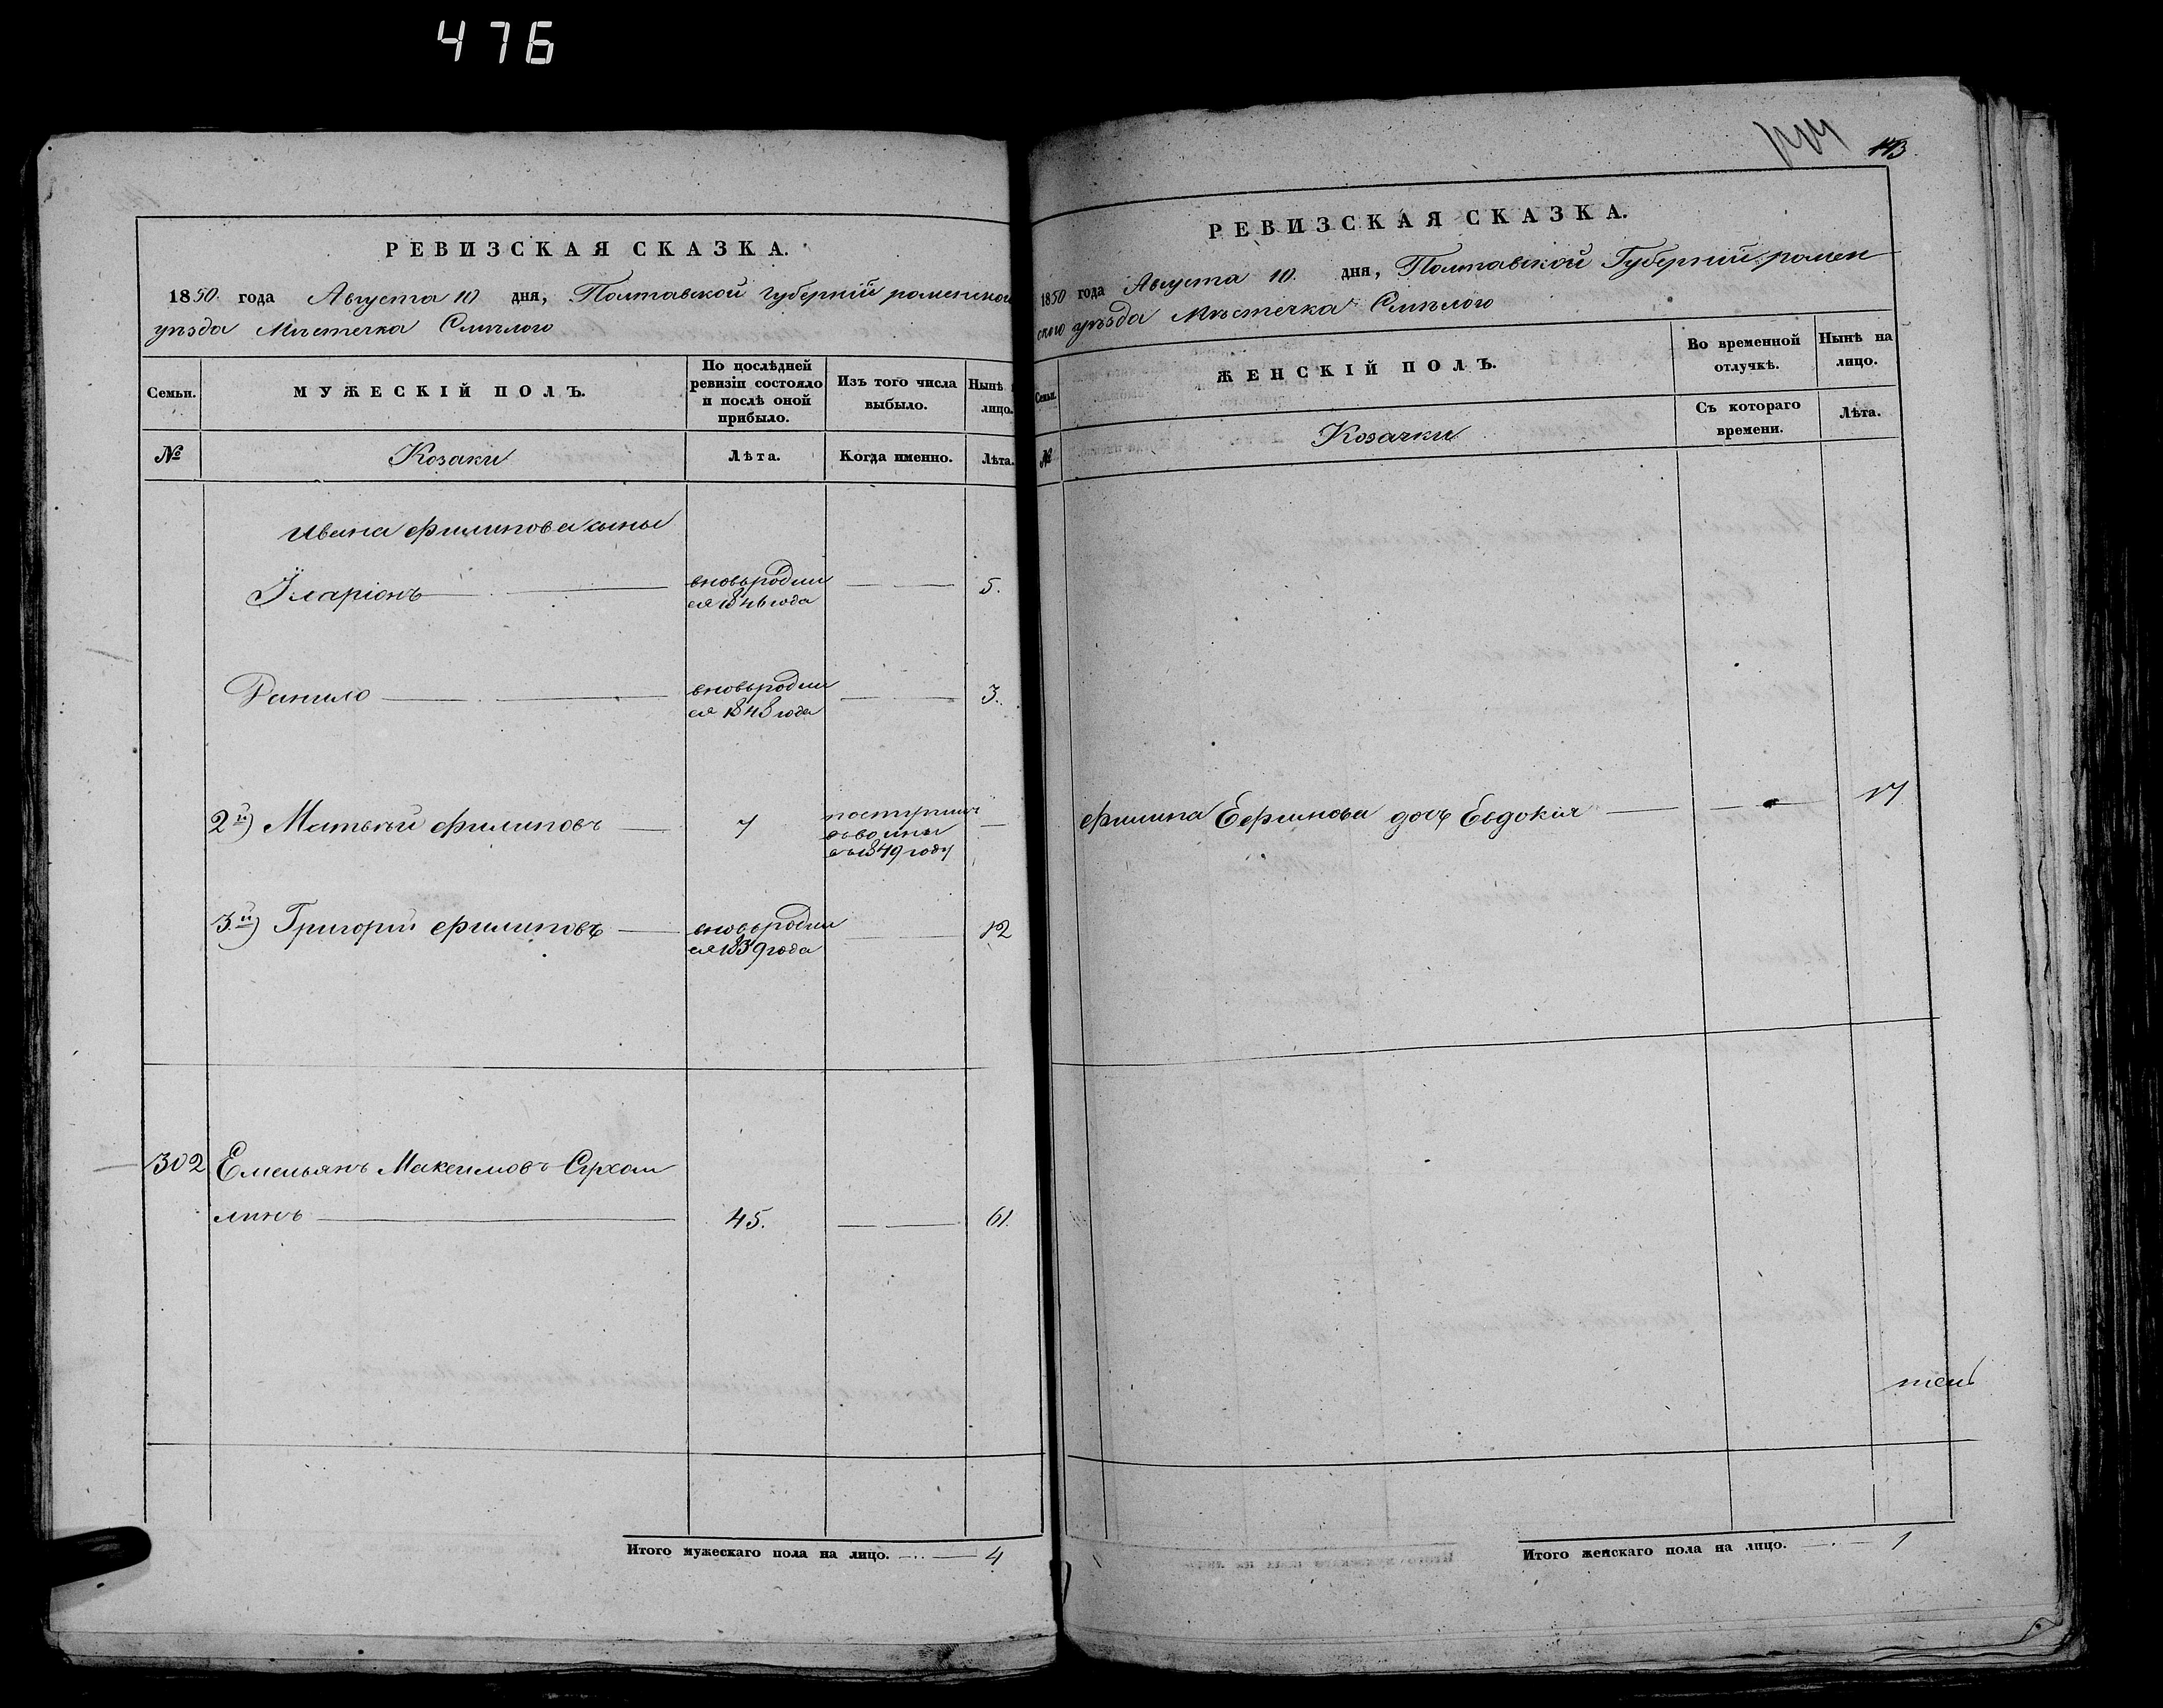 476
РЕВИЗСКАЯ СКАЗКА.
1850. года Августа 10 дня, Полтавской Губерніи роменскаго
уѣзда Мѣстечка Смѣлого
Семьи.
МУЖЕСКІЙ ПОЛЪ.
По послѣдней
ревизіи состояло
и послѣ оной
прибыло.
Изъ того числа
выбыло.
Нынѣ
лицо.
№
Козаки
Лѣта.
Когда именно.
Лѣта.
Ивана Филипова сыны
Іларіонъ
вновьродил
ся 1846 года
5.
Данило
вновьродил
ся 1848 года
3.
2й) Матвѣй Филиповъ
7
въ 1849 году
3.й) Григорій Филиповъ
вновьродил
ся 1839 года
12
302
Емельянъ Максимовъ
линъ
45.
61.
Итого мужескаго пола на лицо. 4
143.
РЕВИЗСКАЯ СКАЗКА.
1850 года Августа 10. дня, Полтавской Губерніи ромен
ского уѣзда Мѣстечка Смѣлого
Семьи.
ЖЕНСКІЙ ПОЛЪ.
Во временной
отлучкѣ.
Нынѣ на
лицо.
Съ котораго
времени.
Лѣта.
№
Козачки
Филипа Ефимова дочь Евдокія
17
Итого женскаго пола на лицо. 1